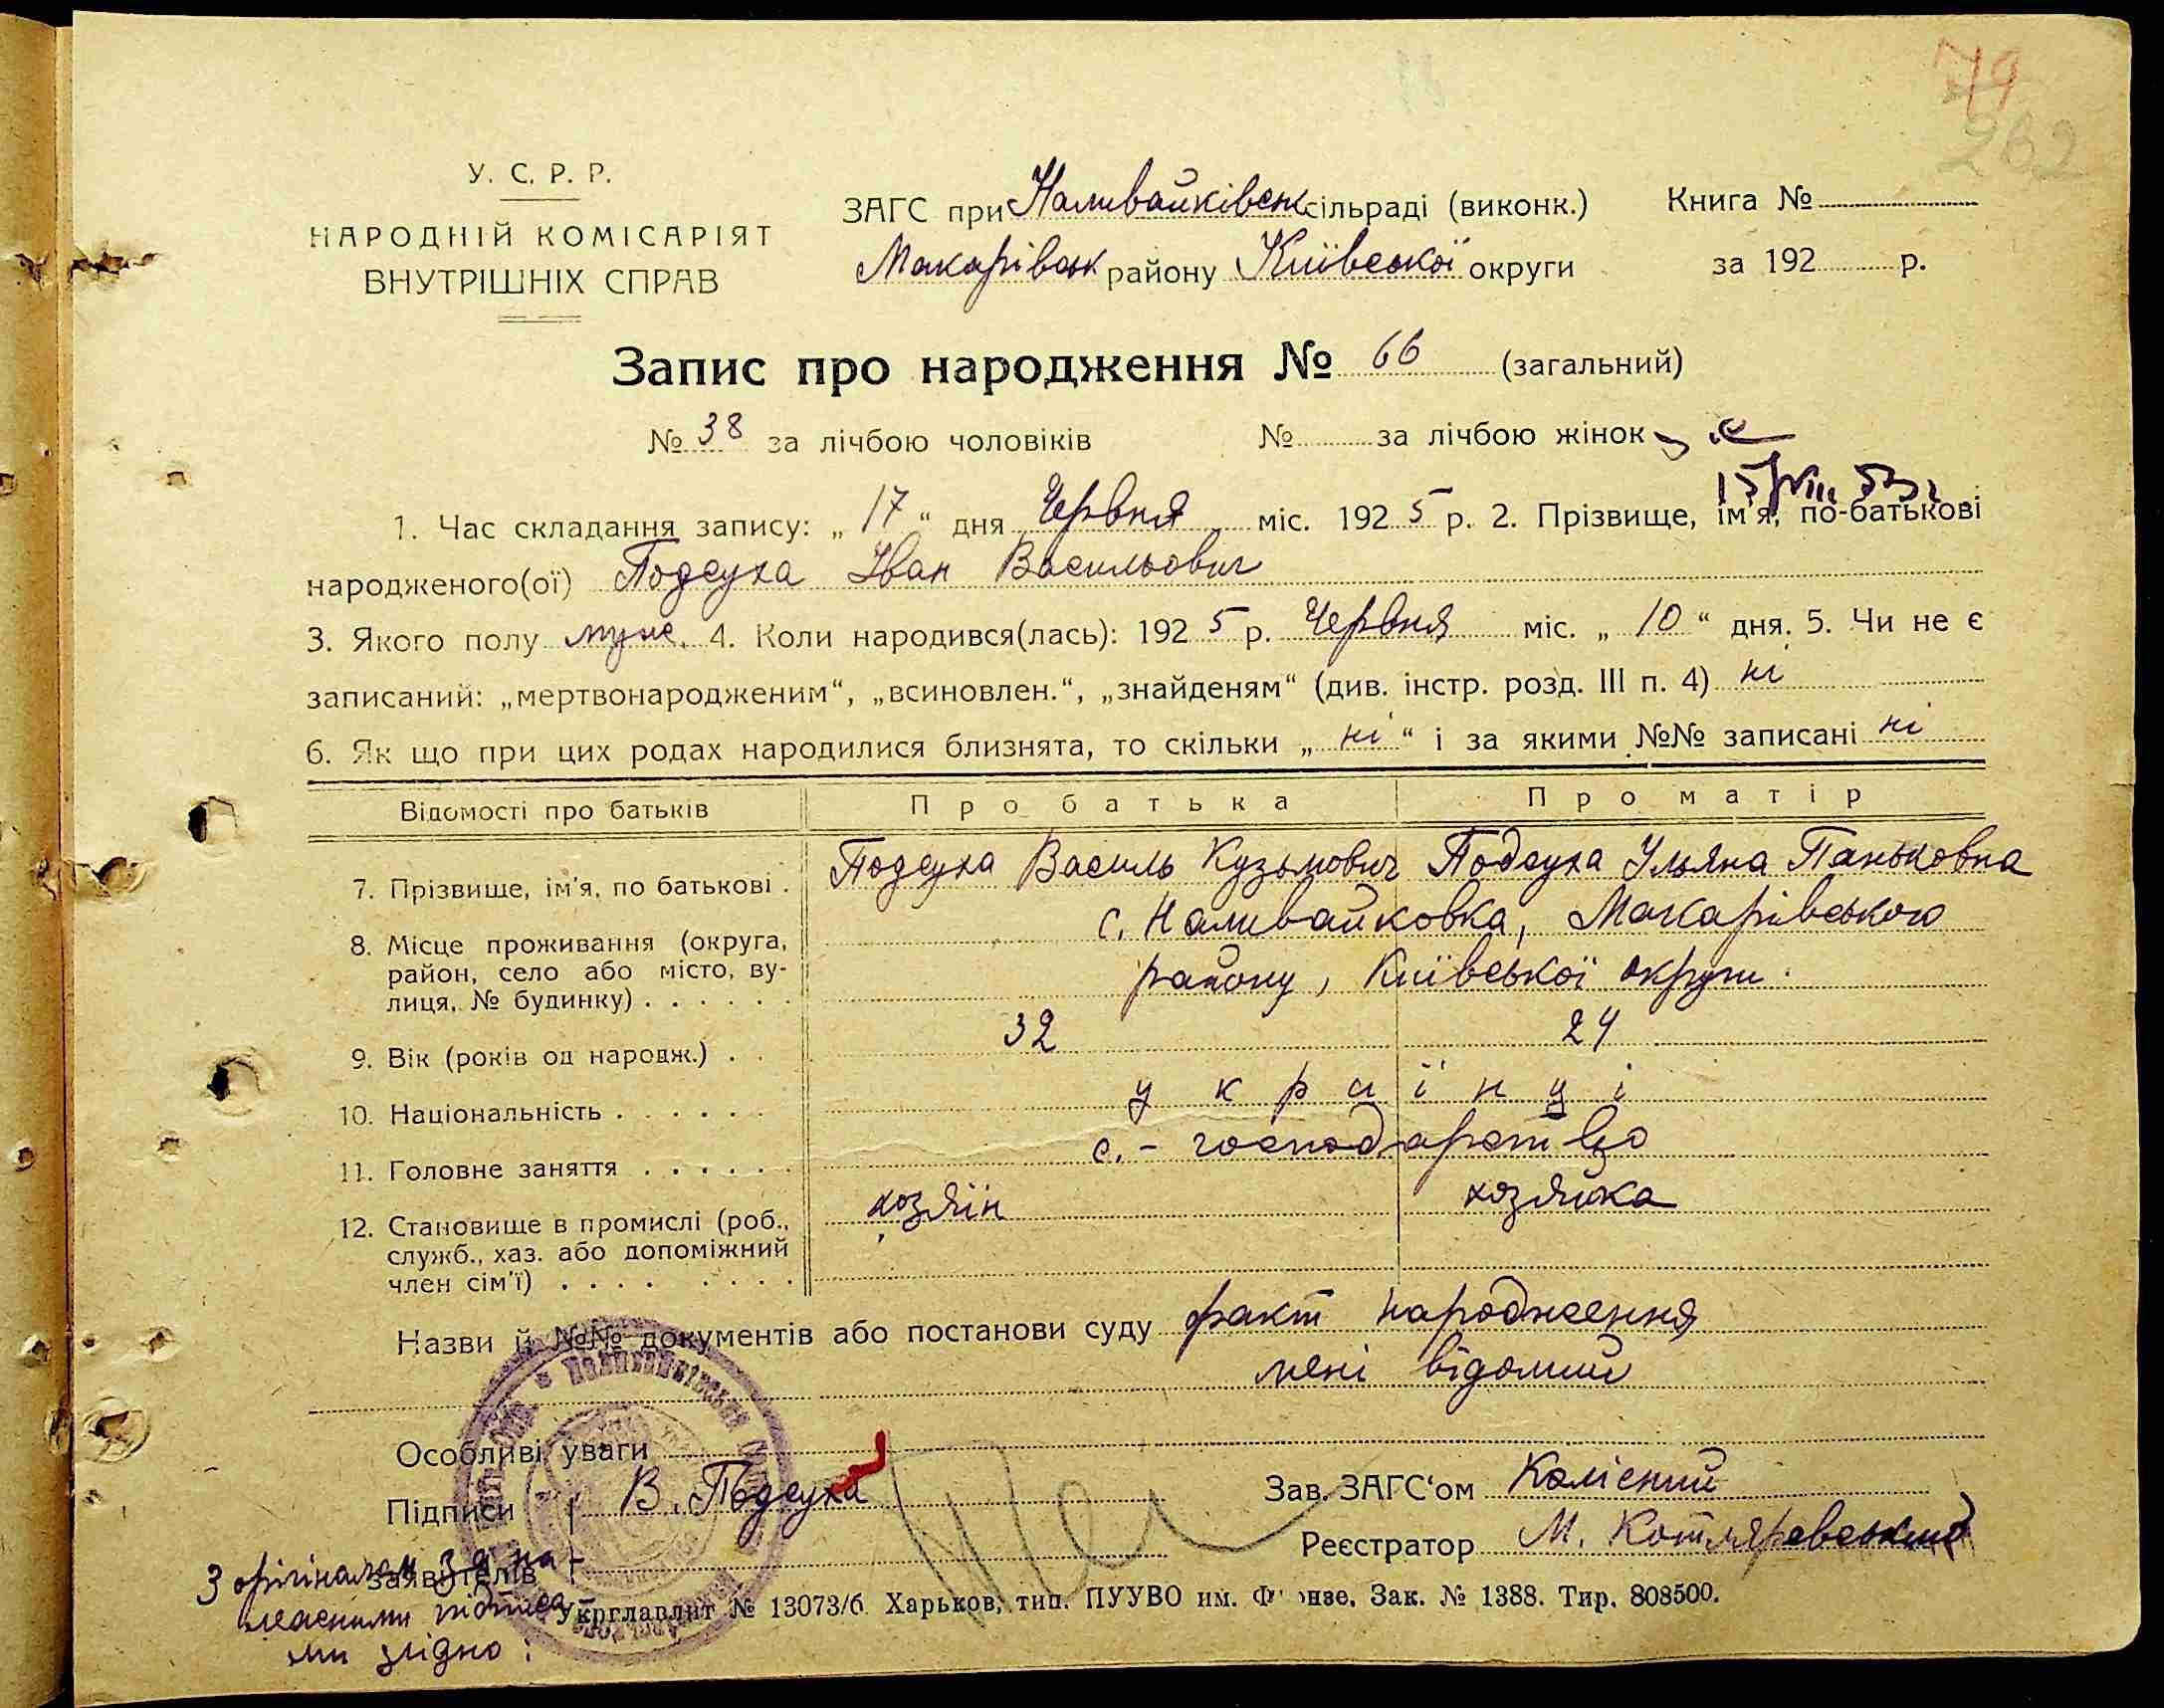 79
262
У. С. Р. Р.
НАРОДНІЙ КОМІСАРІЯТ
ВНУТРІШНІХ СПРАВ
ЗАГС при Наливайківськ сільраді (виконк.) Книга №
Макарівськ району Київської округи за 192 р.
Запис про народження № 66 (загальний)
№ 38 за лічбою чоловіків № за лічбою жінок
1. Час складання запису: „ 17 “ дня Червня міс. 192 5 р. 2. Прізвище, ім'я, по-батькові
народженого(ої) Подсуха Іван Васильович
3. Якого полу муж. 4. Коли народився(лась): 192 5 р. Червня міс. „ 10 “ дня. 5. Чи не є
записаний: „мертвонародженим“, „всиновлен.“, „знайденям“ (див. інстр. розд. III п. 4) ні
6. Як що при цих родах народилися близнята, то скільки „ ні “ і за якими №№ записані ні
Відомості про батьків Про батька Про матір
7. Прізвище, ім'я, по батькові . Подсуха Василь Кузьмович Подсуха Ульяна Паньковна
8. Місце проживання (округа, с. Наливайковка, Макарівського
район, село або місто, ву-
лиця, № будинку) . . . . . . району, Київської округи.
9. Вік (років од народж.) . . 32 24
10. Національність . . . . . . українці
11. Головне заняття . . . . . . с.-господарство
12. Становище в промислі (роб., хозяїн хозяйка
служб., хаз. або допоміжний
член сім'ї) . . . . . . . .
Назви й №№ документів або постанови суду факт народження
мені відомий
Особливі уваги
Підписи В. Подсуха Зав. ЗАГС‘ом Колісний
заявителів Реєстратор М. Котляревський
З орігіналом за на-
леасними підписа
ми згідно:
Укрглавлит № 13073/б Харьков, тип. ПУУВО им. Фрунзе. Зак. № 1388. Тир. 808500.